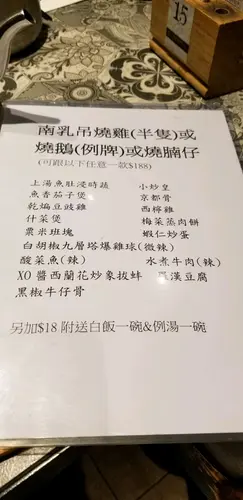 15
南乳吊燒雞(半隻)或
燒鵝(例牌)或燒腩仔
(可跟以下任意一款$188)
上湯魚肚浸時蔬 小炒皇
魚香茄子煲 京都骨
乾煸豆豉雞 西檸雞
什菜煲 梅菜蒸肉餅
粟米班塊 蝦仁炒蛋
白胡椒九層塔爆雞球(微辣)
酸菜魚(辣) 水煮牛肉(辣)
XO醬西蘭花炒象拔蚌 漢豆腐
黑椒牛仔骨
另加$18 附送白飯一碗&例湯一碗